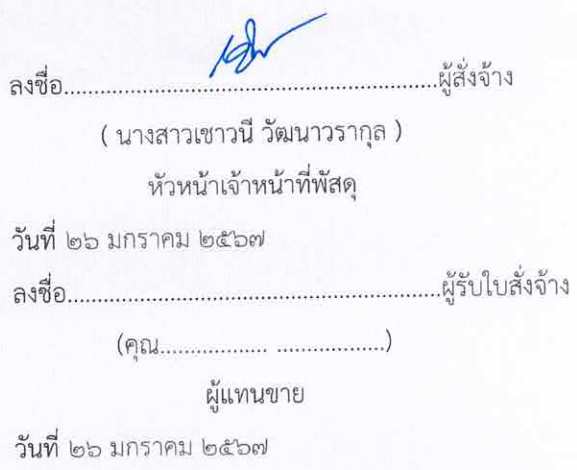 ลงชื่อ.......................................................ผู้สั่งจ้าง
( นางสาวเชาวนี วัฒนาวรากุล )
หัวหน้าเจ้าหน้าที่พัสดุ
วันที่ ๒๖ มกราคม ๒๕๖๗
ลงชื่อ.......................................................ผู้รับใบสั่งจ้าง
(คุณ.................. ..................)
ผู้แทนขาย
วันที่ ๒๖ มกราคม ๒๕๖๗